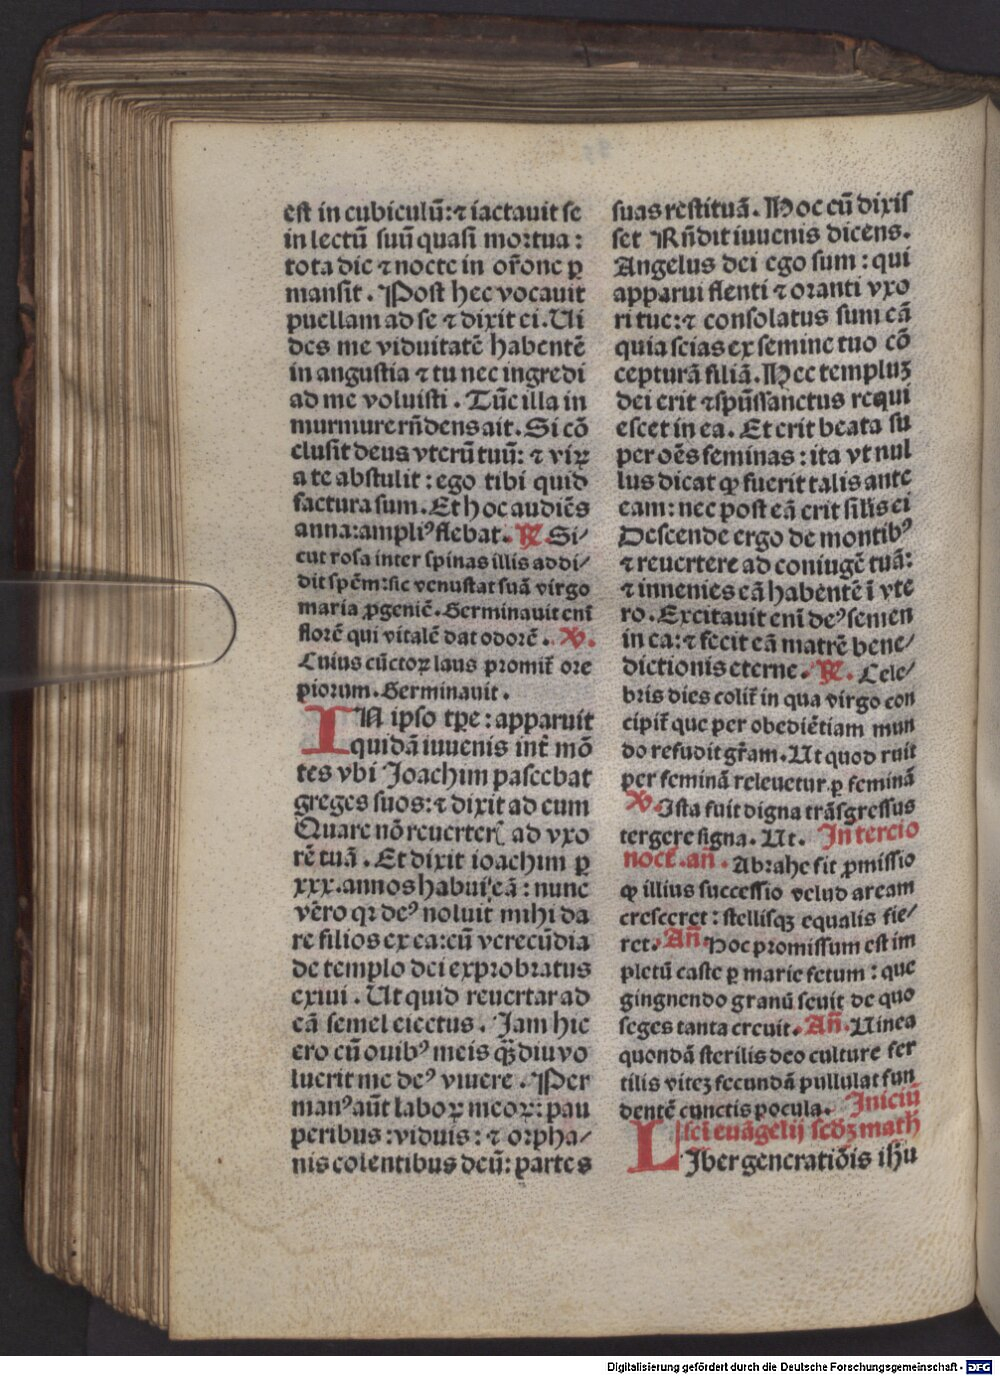 est in cubiculū: ⁊ iactauit se
in lectū suū quasi mortua:
tota die ⁊ nocte in or̄one p̱
mansit. Post hec vocauit
puellam ad se ⁊ dixit ei. Ui
des me viduitatē habentē
in angustia ⁊ tu nec ingredi
ad me voluisti. Tūc illa in
murmure rn̄dens ait. Si cō
clusit deus vterū tuū: ⁊ virꝝ
a te abstulit: ego tibi quid
factura sum. Et hoc audiēs
anna: ampliꝰ flebat. ℟. Si/
cut rosa inter spinas illis addi/
dit spēm: sic venustat suā virgo
maria ꝓgeniē. Germinauit eni̅
florē qui vitalē dat odorē. ℣.
Cuius cūctoꝝ laus promit̄ ore
piorum. Germinauit.
IN ipso tp̄e: apparuit
quidā iuuenis int̄ mō
tes vbi Joachim pascebat
greges suos: ⁊ dixit ad eum
Quare nō reuerteꝛ̄ ad vxo
rē tuā. Et dixit ioachim p̱
xxx. annos habui eā: nunc
vero qꝛ deꝰ noluit mihi da
re filios ex ea: cū verecūdia
de templo dei exprobratus
exiui. Ut quid reuertar ad
eā semel eiectus. Jam hic
ero cū ouibꝰ meis qᷓ̄diu vo
luerit me deꝰ viuere. Per
manꝰ aūt laboꝝ meoꝝ: pau
peribus: viduis: ⁊ orpha/
nis colentibus deū: partes
suas restituā. Hoc cū dixis
set Rn̄dit iuuenis dicens.
Angelus dei ego sum: qui
apparui flenti ⁊ oranti vxo
ri tue: ⁊ consolatus sum eā
quia scias ex semine tuo cō
cepturā filiā. Hec templuꝫ
dei erit ⁊ spūssanctus requi
escet in ea. Et erit beata su
per oēs feminas: ita vt nul
lus dicat ꝙ fuerit talis ante
eam: nec post eā erit sil̄is ei
Descende ergo de montibꝰ
⁊ reuertere ad coniugē tuā:
⁊ inuenies eā habentē i̅ vte
ro. Excitauit eni̅ deꝰ semen
in ea: ⁊ fecit eā matrē bene/
dictionis eterne. ℟. Cele/
bris dies colit̄ in qua virgo con
cipit̄ que per obediētiam mun
do refudit gr̄am. Ut quod ruit
per feminā releuetur p̱ feminā
℣. Ista fuit digna trāsgressus
tergere signa. Ut. In tercio
noct̄. an̄. Abrahe fit ꝓmissio
ꝙ illius successio velud aream
cresceret: stellisqꝫ equalis fie/
ret. An̄. Hoc promissum est im
pletū caste p̱ marie fetum: que
gingnendo granū seuit de quo
seges tanta creuit. An̄. Uinea
quondā sterilis deo culture fer
tilis viteꝫ fecundā pullulat fun
dentē cunctis pocula. Iniciū
sci̅ euāgelij scd̄ꝫ math̄
LIber generatiōis ih̄u
Digitalisierung gefördert durch die Deutsche Forschungsgemeinschaft - DFG